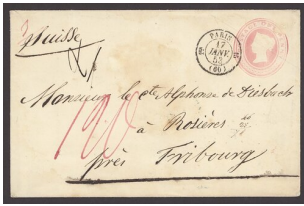 Suisse
PARIS
17
JANV.
53
(60)
Monsieur le cte Alphonse de Diesbach
à Rosières
près Fribourg